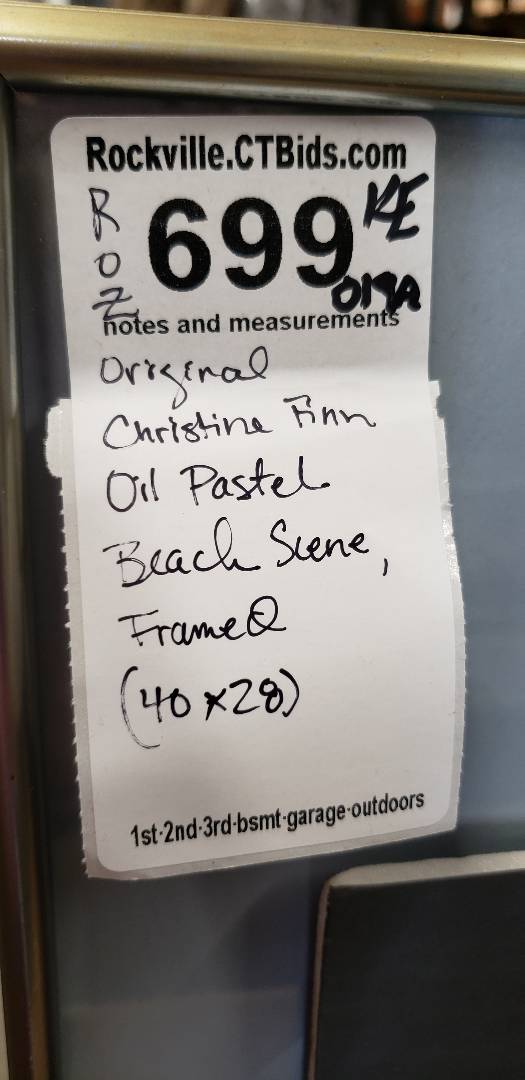 Rockville.CTBids.com
ROZ
699
KE
019A
notes and measurements
Original
Christine Finn
Oil Pastel
Beach Scene,
Framed
(40 x 28)
1st-2nd-3rd-bsmt-garage-outdoors